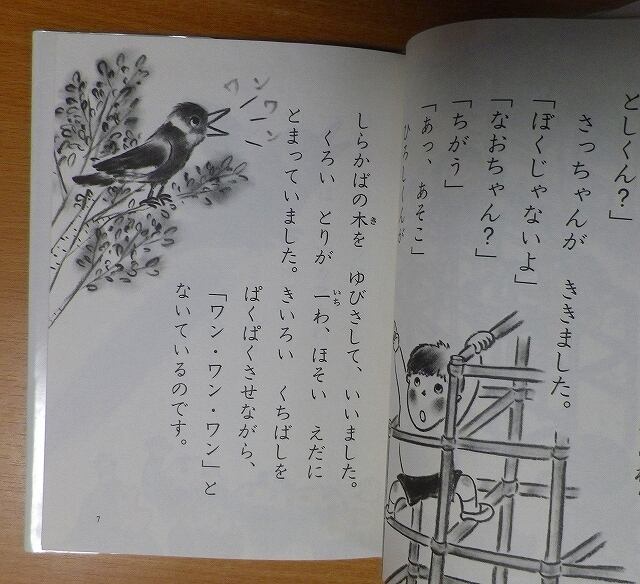 としくん?」
さっちゃんが ききました。
「ぼくじゃないよ」
「なおちゃん?」
「ちがう」
「あっ、あそこ」
しらかばの木を ゆびさして、いいました。
くろい とりが 一わ、ほそい えだに
とまっていました。 きいろい くちばしを
ぱくぱくさせながら、
「ワン・ワン・ワン」と
ないているのです。
ワンワン
7